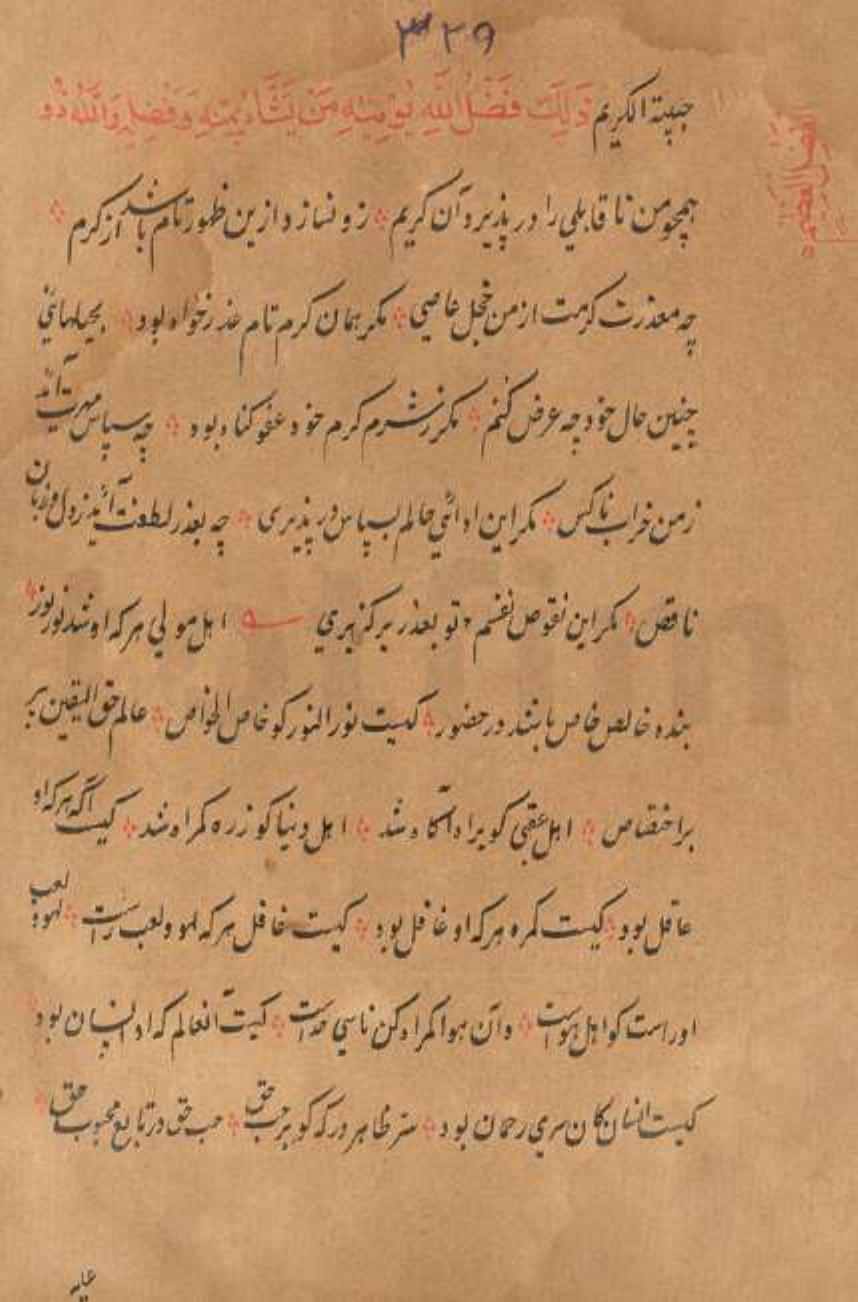 ۳۲۹
حبیبة الکریم ذَلِكَ فَضْلُ اللَّهِ یُؤتِیهِ مَن یَشَآءُ بِمَنِّهِ وَفَضلِهِ وَاللَّهُ ذُو
الفضل العظیم
همچو من نا قابلی را در پذیرد آن کریم ؞ زو نسازد ازین ظهور تام باشد از کرم ؞
چه معذرت کرمت از من خجل عاصی ؞ مکر همان کرم تام عذر خواه بود ؞
چنین حال خود چه عرض کنم ؞ مکر ز شرم کرم خود عفو کناه بود ؞ چه سپاس میرت آید
ز من خراب ناکس ؞ مکر این ادائی حالم بسپاس در پذیری ؞ چه بعذر لطفت آید ز دل و زبان
ناقص ؞ مکر این نقوص نفسم ؞ تو بعذر بر کزیری اهل مولی هر که او شد نور نور ؞
بنده خالص خاص باشد در حضور ؞ کیست نور النور کو خاص الخواص ؞ عالم حق الیقین بر
بر اختصاص ؞ اهل عقبی کو براه آکاه شد ؞ اهل دنیا کو ز ره کمراه شد ؞ کیست آکه هر که او
عاقل بود ؞ کیست کمره هر که او غافل بود ؞ کیست غافل هر که لهو و لعب راست ؞ لهو و لعب
اوراست کو اهل هواست ؞ وآن هوا کمراه کن ناسی خداست ؞ کیست آنعالم که او انسان بود
کیست انسان کان سری رحمان بود ؞ سر ظاهر در که کو بر حب حق ؞ حب حق در تابع محبوب حق ؞
علیه